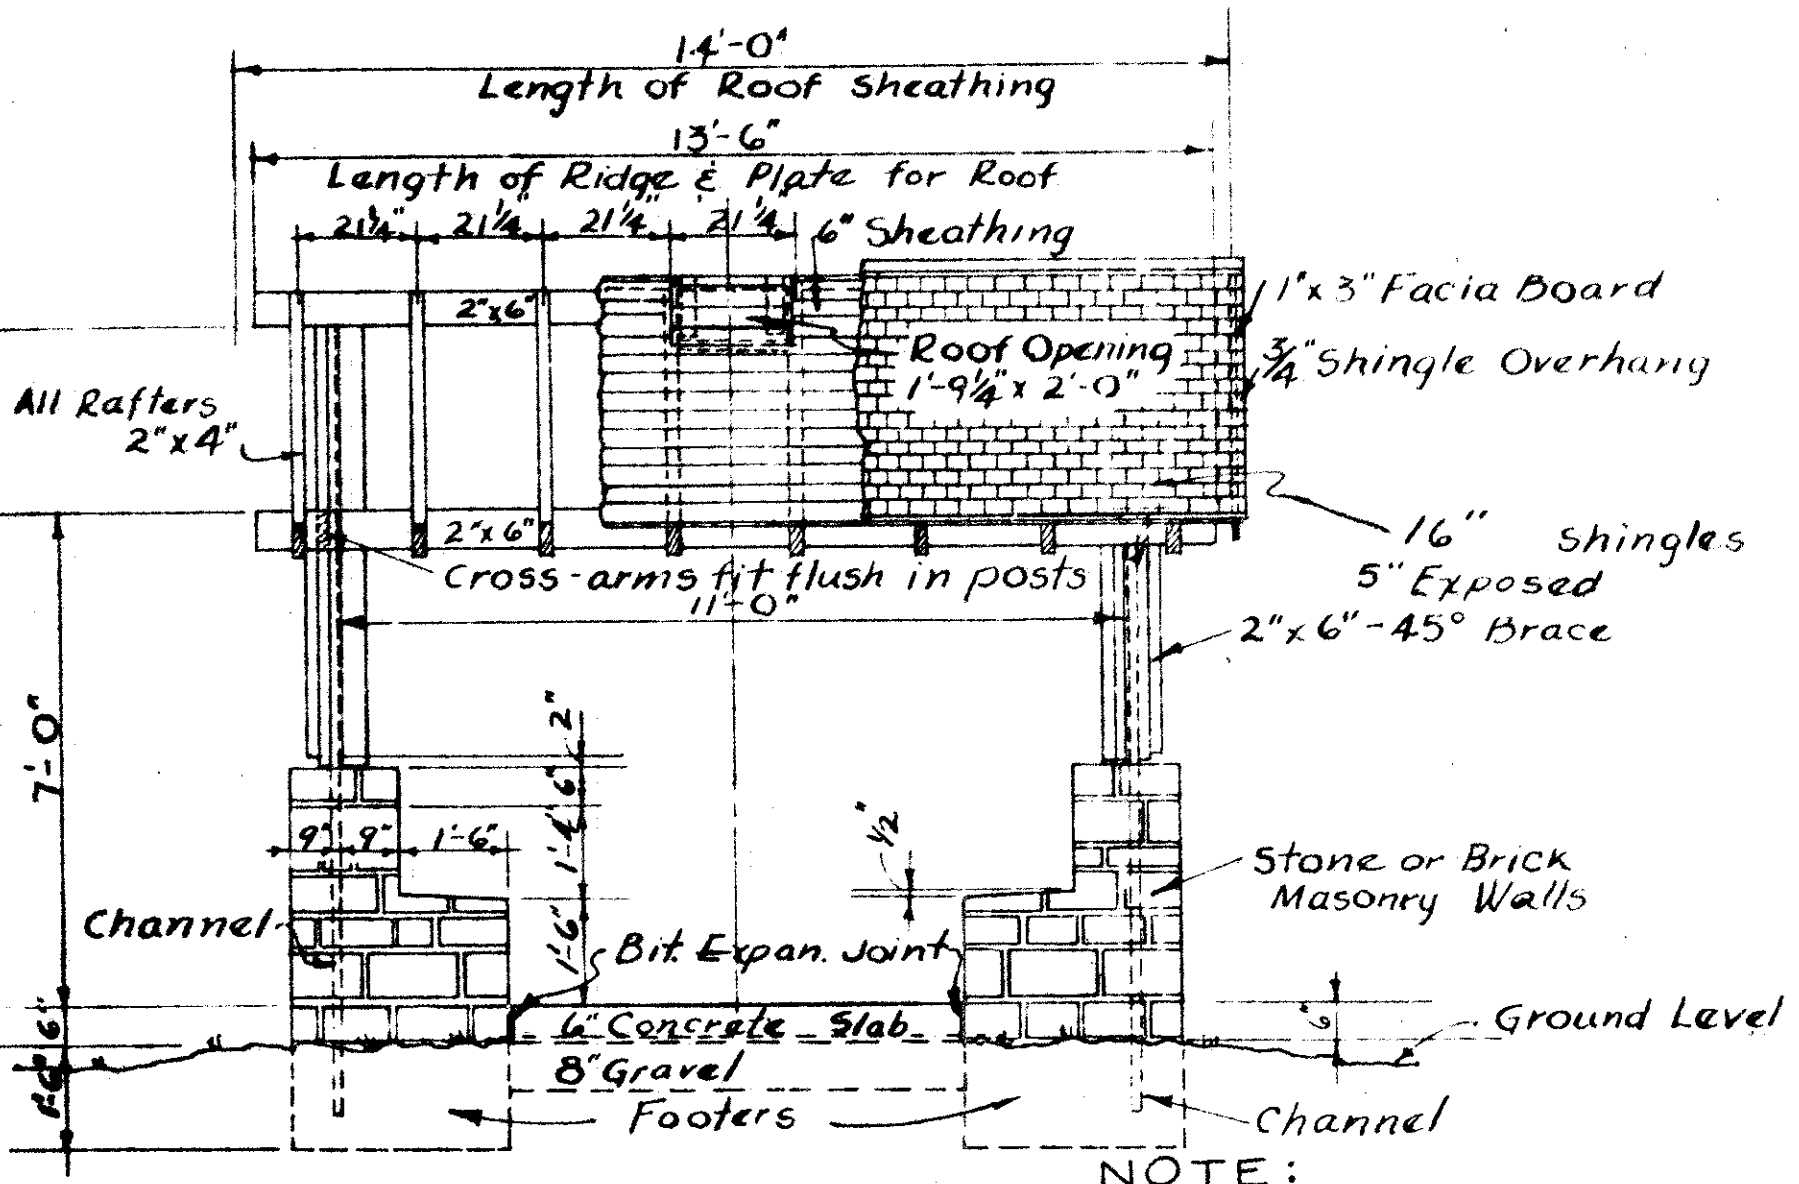 14'-0"
Length of Roof Sheathing
13'-6"
Length of Ridge & Plate for Roof
21¼" 21¼" 21¼" 21¼" 6" Sheathing
2"x6"
1"x 3" Facia Board
Roof Opening
1'-9¼" x 2'-0"
¾" Shingle Overhang
All Rafters
2"x4"
2"x6"
16" Shingles
5" Exposed
Cross-arms fit flush in posts
11'-0"
2"x6"-45° Brace
7'-0"
2"
6"
1'-4"
1'-6"
9" 9" 1'-6"
½"
Stone or Brick
Masonry Walls
Channel
Bit. Expan. Joint
6" Concrete Slab
8" Gravel
Footers
6"
6"
Ground Level
Channel
NOTE: